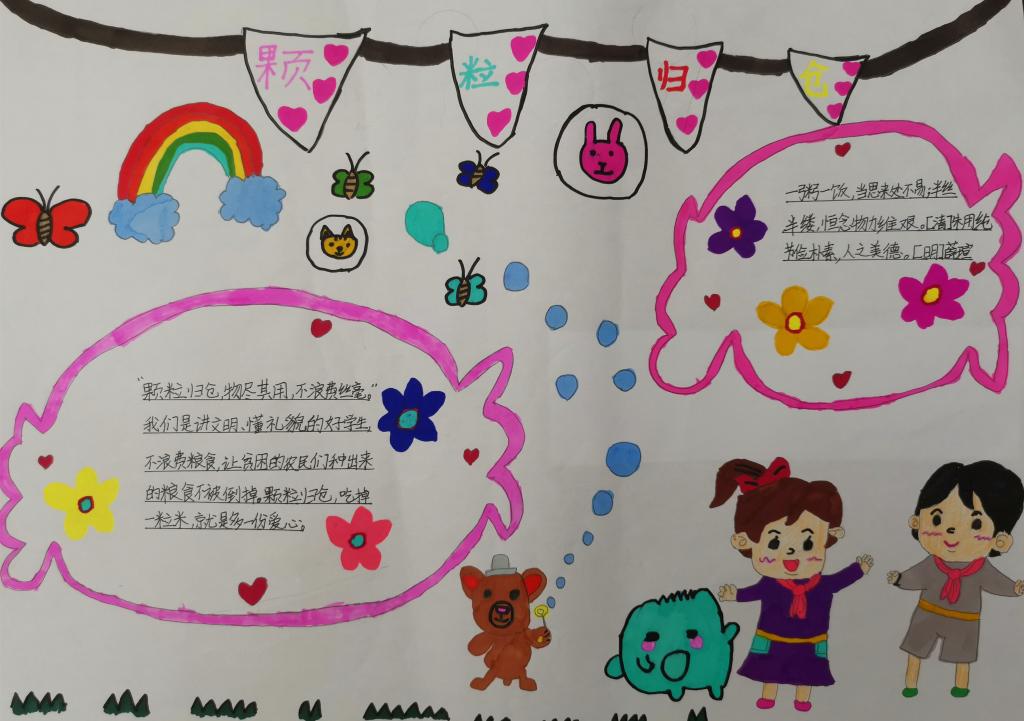 颗粒归仓
一粥一饭，当思来处不易；半丝
半缕，恒念物力维艰。[清]朱用纯
节俭朴素，人之美德。[明]薛瑄
“颗粒归仓，物尽其用，不浪费丝毫。”
我们是讲文明、懂礼貌的好学生，
不浪费粮食，让贫困的农民们种出来
的粮食不被倒掉。颗粒归仓，吃掉
一粒米，就是多一份爱心。